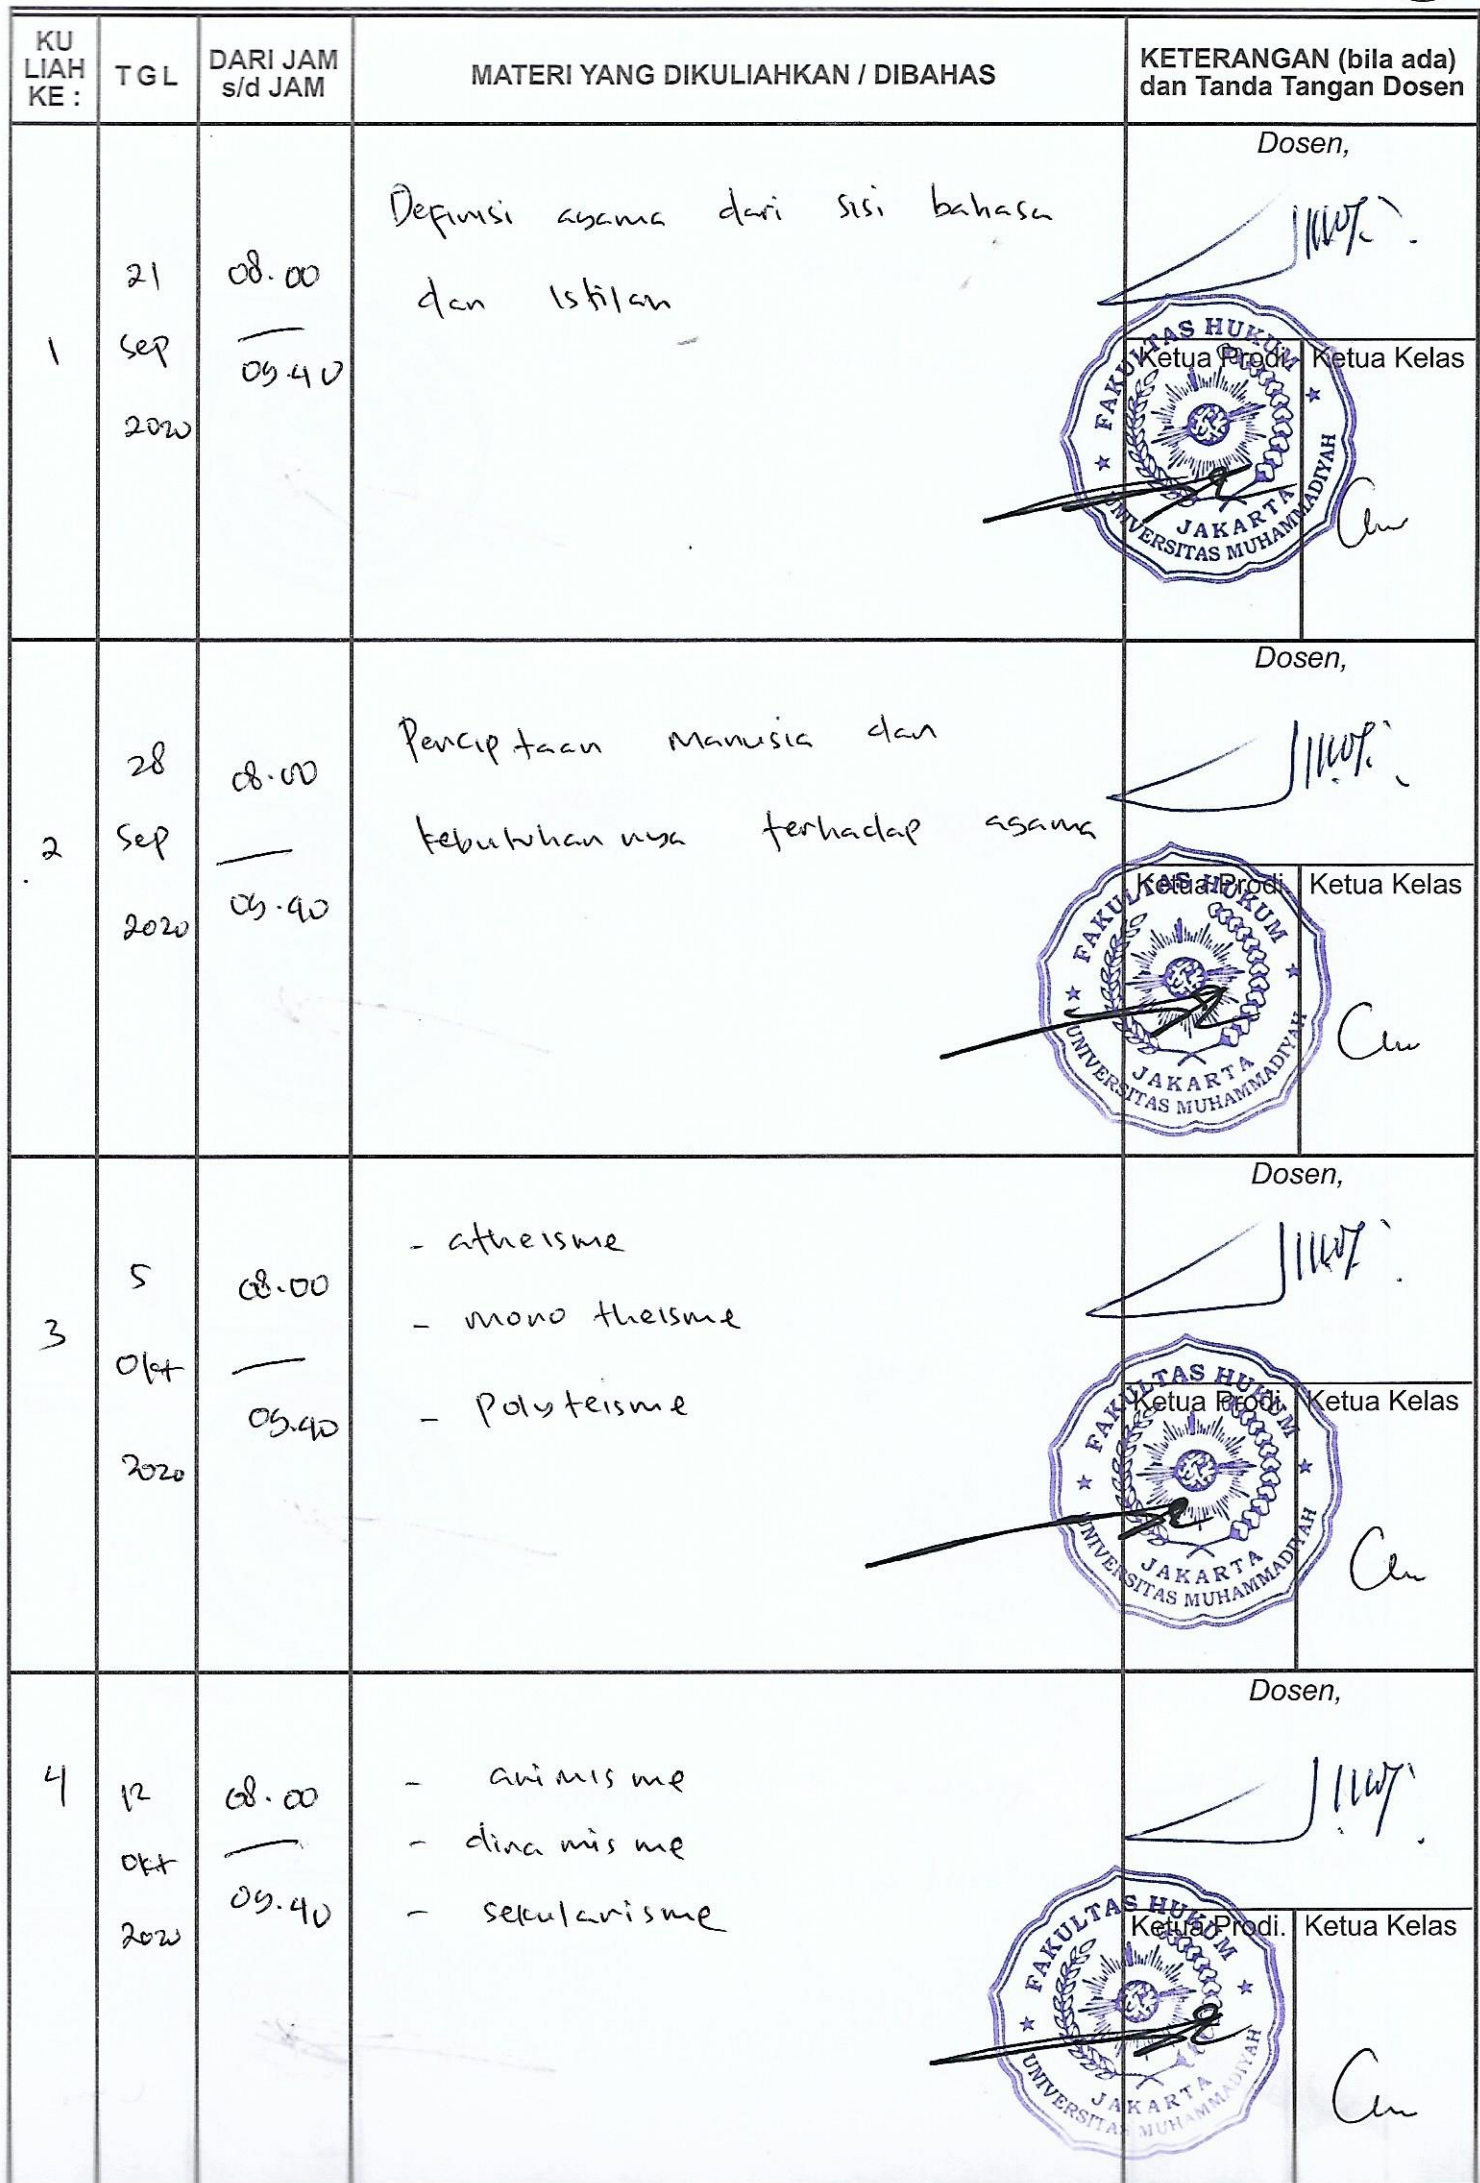 KU LIAH KE :
TGL
DARI JAM s/d JAM
MATERI YANG DIKULIAHKAN / DIBAHAS
KETERANGAN (bila ada)
dan Tanda Tangan Dosen
1
21
Sep
2020
08.00
09.40
Definisi agama dari sisi bahasa
dan Istilah
Dosen,
Ketua Prodi.
Ketua Kelas
FAKULTAS HUKUM
JAKARTA
UNIVERSITAS MUHAMMADIYAH
2
28
Sep
2020
08.00
09.40
Penciptaan Manusia dan
kebutuhannya terhadap agama
Dosen,
Ketua Prodi.
Ketua Kelas
FAKULTAS HUKUM
JAKARTA
UNIVERSITAS MUHAMMADIYAH
3
5
Okt
2020
08.00
09.40
- atheisme
- mono theisme
- Polyteisme
Dosen,
Ketua Prodi.
Ketua Kelas
FAKULTAS HUKUM
JAKARTA
UNIVERSITAS MUHAMMADIYAH
4
12
Okt
2020
08.00
09.40
- animisme
- dinamisme
- sekularisme
Dosen,
Ketua Prodi.
Ketua Kelas
FAKULTAS HUKUM
JAKARTA
UNIVERSITAS MUHAMMADIYAH